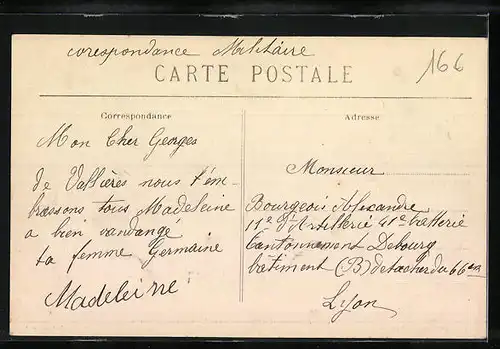 corespondance Militaire
166
CARTE POSTALE
Correspondance
Adresse
Mon Cher Georges
de Vallières nous t'em-
brassons tous Madeleine
a bien vandange
ta femme Germaine
Madeleine
Monsieur
Bourgeois Alexandre
11e d'Artillerie 41e batterie
Cantonnement Debourg
batiment (B) detacher du 66
Lyon